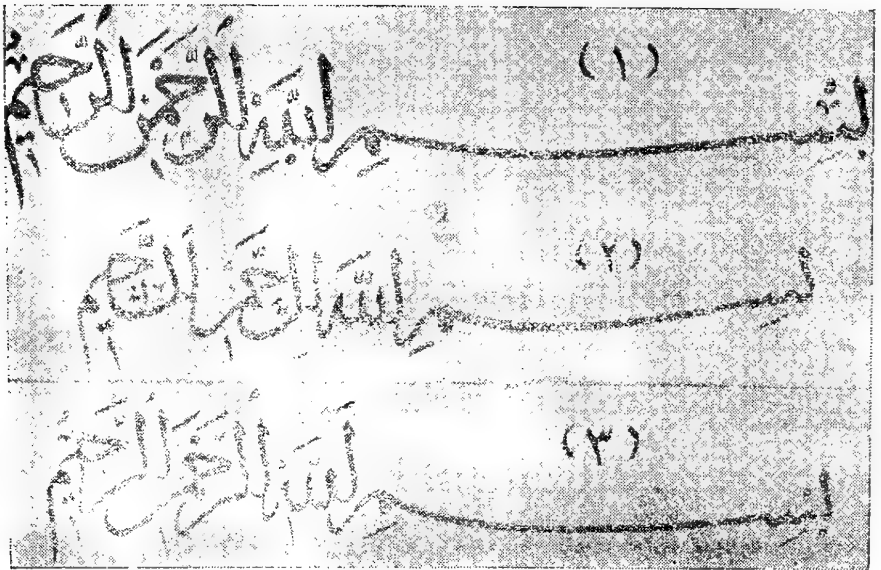 (١)
بِسْمِ اللَّهِ الرَّحْمَنِ الرَّحِيمِ
(٢)
بسم الله الرحمن الرحيم
(٣)
بسم الله الرحمن الرحيم